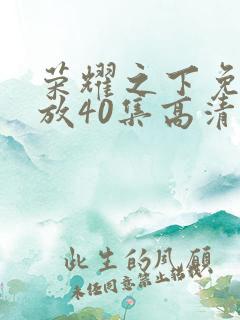 荣耀之下免
放40集高清
此生的风愿
未经同意禁止搭载